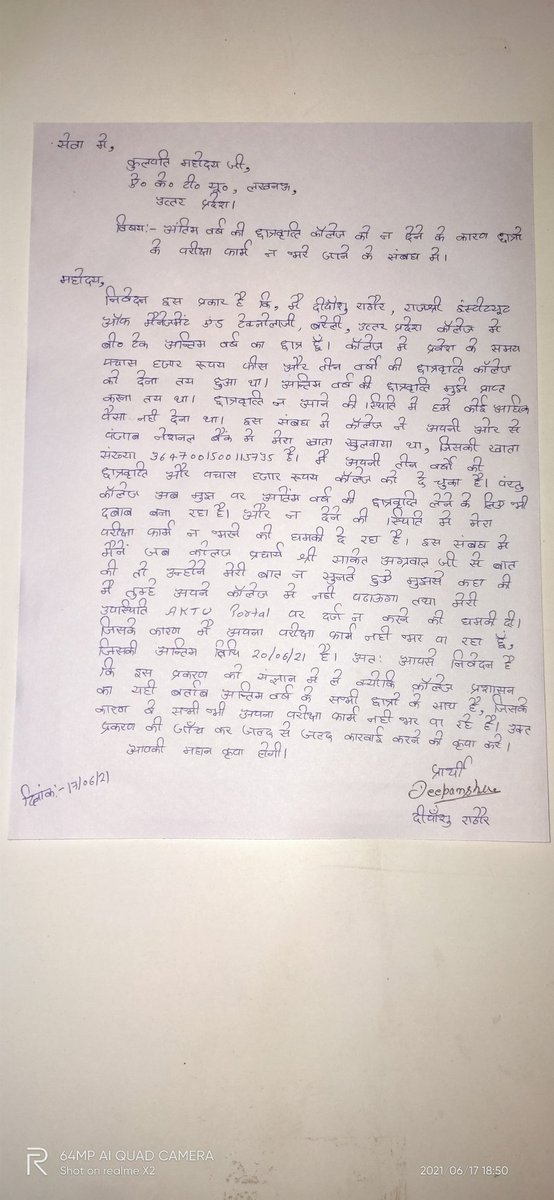 सेवा में,
कुलपति महोदय जी,
ऐ० के० टी० यू०, लखनऊ,
उत्तर प्रदेश।
विषय:- अंतिम वर्ष की छात्रवृत्ति कॉलेज को न देने के कारण छात्रो
के परीक्षा फार्म न भरे जाने के संबंध मे।
महोदय,
निवेदन इस प्रकार है कि, मै दीपाँशु राठौर, राजश्री इंस्टीट्यूट
ऑफ मैनेजमेंट एंड टेक्नोलाजी, बरेली, उत्तर प्रदेश कॉलेज मे
बी० टेक अन्तिम वर्ष का छात्र हूँ। कॉलेज मे प्रवेश के समय
पचास हजार रूपय फीस और तीन वर्षो की छात्रवृत्ति कॉलेज
को देना तय हुआ था। अन्तिम वर्ष की छात्रवृत्ति मुझे प्राप्त
करना तय था। छात्रवृत्ति न आने की स्थिति मे हमे कोई अधिक
पैसा नही देना था। इस संबध मे कॉलेज ने अपनी ओर से
पंजाब नेशनल बैंक मे मेरा खाता खुलवाया था, जिसकी खाता
संख्या 3647001500115735 है। मै अपनी तीन वर्षो की
छात्रवृत्ति और पचास हजार रूपय कॉलेज को दे चुका है। परंतु
कॉलेज अब मुझ पर अतिंम वर्ष की छात्रवृत्ति लेने के लिए भी
दबाब बना रहा है। और न देने की स्थिति मे मेरा
परीक्षा फार्म न भरने की धमकी दे रहा है। इस संबध मे
मैनें जब कॉलेज प्रचार्य श्री साकेत अग्रवाल जी से बात
की तो उन्होने मेरी बात न सुनते हुऐ मुझसे कहा की
मै तुम्हे अपने कॉलेज मे नही पढाऊगा तथा मेरी
उपस्थिति AKTU Portal पर दर्ज न करने की धमकी दी।
जिसके कारण मै अपना परीक्षा फार्म नही भर पा रहा हूँ,
जिसकी अन्तिम तिथि 20/06/21 है। अतः आपसे निवेदन है
कि इस प्रकरण को संज्ञान मे ले क्योकि कॉलेज प्रशासन
का यही बर्ताब अन्तिम वर्ष के सभी छात्रो के साथ है, जिसके
कारण वे सभी भी अपना परीक्षा फार्म नही भर पा रहे है। उक्त
प्रकरण की जाँच कर जल्द से जल्द कारवाई करने की कृपा करे।
आपकी महान कृपा होगी।
प्रार्थी
Deepanshu
दिनांक:- 17/06/21
दीपाँशु राठौर
64MP AI QUAD CAMERA
Shot on realme X2
2021/06/17 18:50